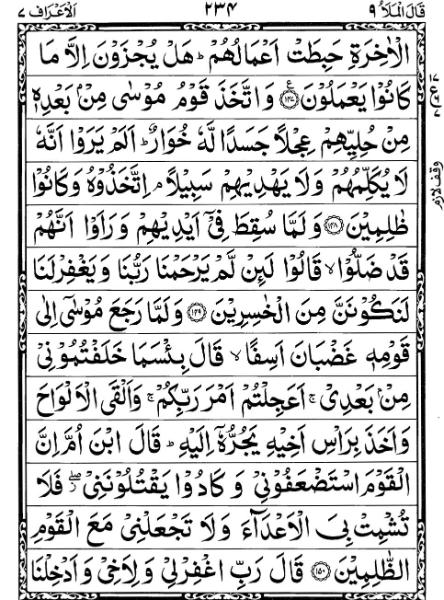 قَالَ الْمَلَاُ ٩ ٢٣٤ اَلْاَعْرَاف ٧
الْاٰخِرَةِ حَبِطَتْ اَعْمَالُهُمْ ؕ هَلْ يُجْزَوْنَ اِلَّا مَا
كَانُوْا يَعْمَلُوْنَ ﴿١٤٧﴾ وَاتَّخَذَ قَوْمُ مُوْسٰى مِنْۢ بَعْدِهٖ
مِنْ حُلِيِّهِمْ عِجْلًا جَسَدًا لَّهٗ خُوَارٌ ؕ اَلَمْ يَرَوْا اَنَّهٗ
لَا يُكَلِّمُهُمْ وَلَا يَهْدِيْهِمْ سَبِيْلًا ۘ اِتَّخَذُوْهُ وَكَانُوْا
ظٰلِمِيْنَ ﴿١٤٨﴾ وَلَمَّا سُقِطَ فِيْۤ اَيْدِيْهِمْ وَرَاَوْا اَنَّهُمْ
قَدْ ضَلُّوْا ۙ قَالُوْا لَئِنْ لَّمْ يَرْحَمْنَا رَبُّنَا وَيَغْفِرْ لَنَا
لَنَكُوْنَنَّ مِنَ الْخٰسِرِيْنَ ﴿١٤٩﴾ وَلَمَّا رَجَعَ مُوْسٰۤى اِلٰى
قَوْمِهٖ غَضْبَانَ اَسِفًا ۙ قَالَ بِئْسَمَا خَلَفْتُمُوْنِيْ
مِنْۢ بَعْدِيْ ۚ اَعَجِلْتُمْ اَمْرَ رَبِّكُمْ ۚ وَاَلْقَى الْاَلْوَاحَ
وَاَخَذَ بِرَاْسِ اَخِيْهِ يَجُرُّهٗۤ اِلَيْهِ ؕ قَالَ ابْنَ اُمَّ اِنَّ
الْقَوْمَ اسْتَضْعَفُوْنِيْ وَكَادُوْا يَقْتُلُوْنَنِيْ ۖ فَلَا
تُشْمِتْ بِيَ الْاَعْدَآءَ وَلَا تَجْعَلْنِيْ مَعَ الْقَوْمِ
الظّٰلِمِيْنَ ﴿١٥٠﴾ قَالَ رَبِّ اغْفِرْ لِيْ وَلِاَخِيْ وَاَدْخِلْنَا
وقف لازم